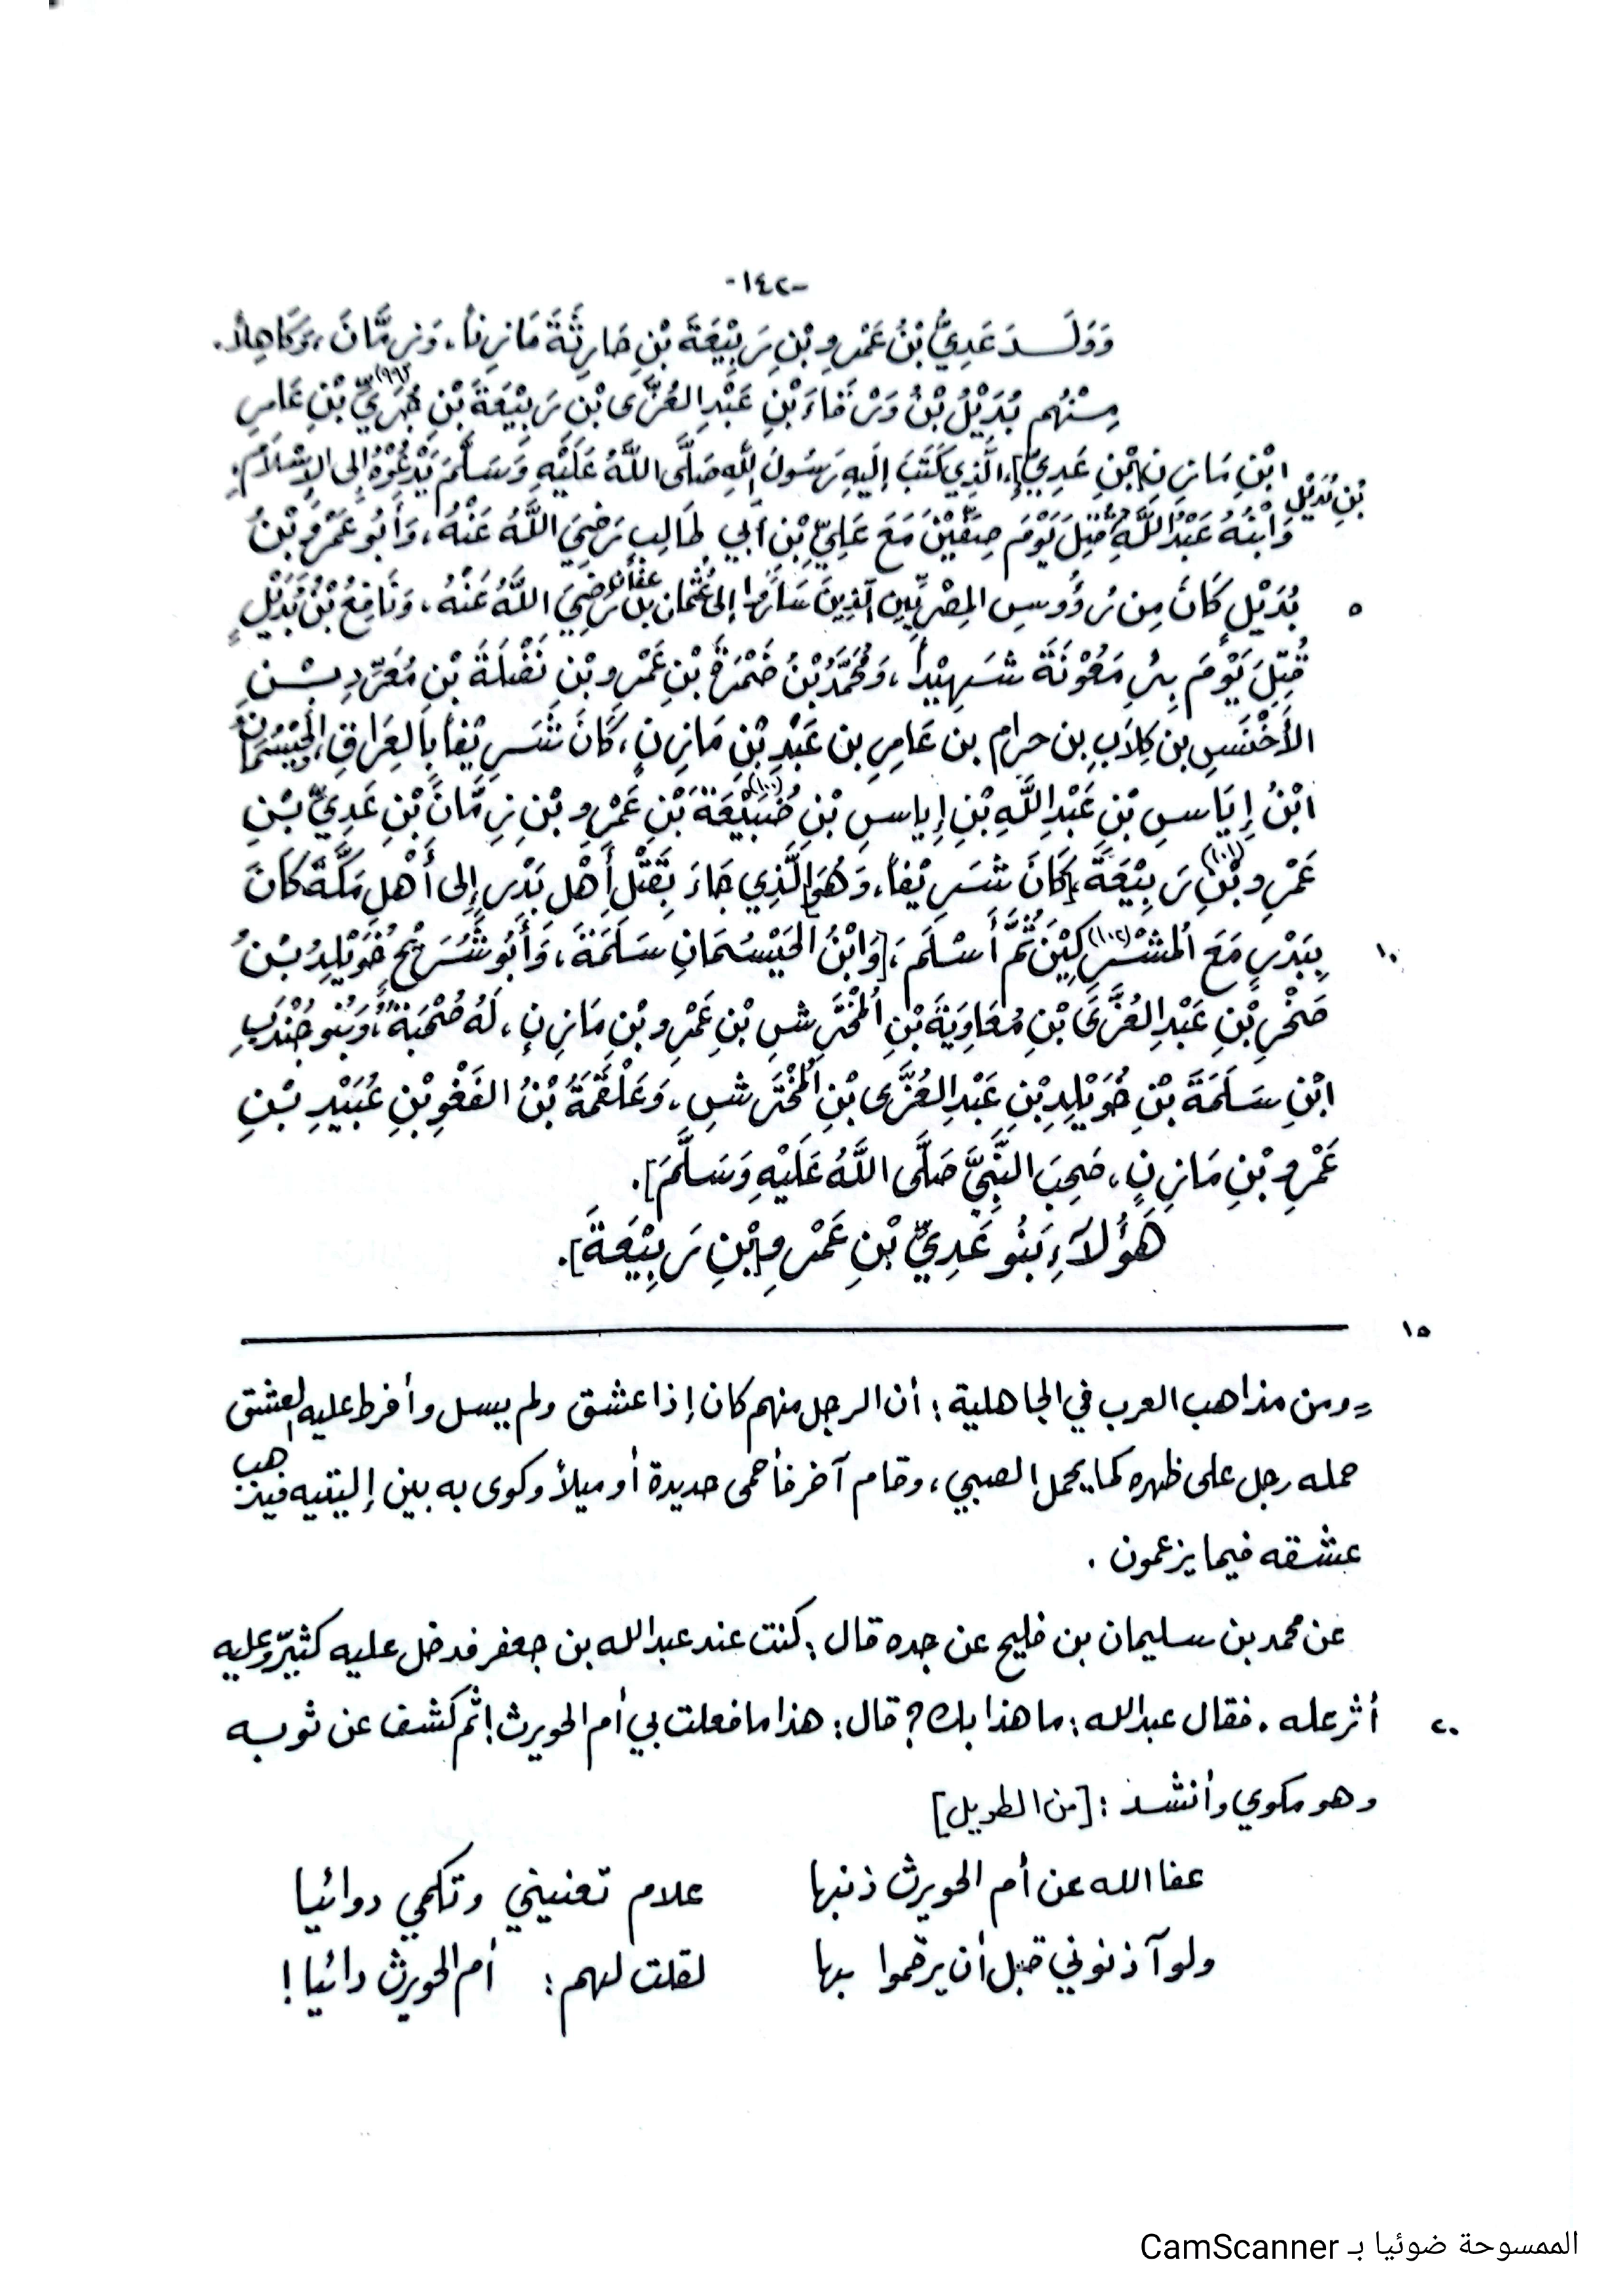 -١٤٢-
وَوَلَــدَ عَدِيُّ بْنُ عَمْرِو بْنِ رَبِيْعَةَ بْنِ حَارِثَةَ مَازِناً، وَزِمَّانَ، وَكَاهِلاً.
مِنْهُم بُدَيْلُ بْنُ وَرْقَاءَ بْنِ عَبْدِ العُزَّى بْنِ رَبِيْعَةَ بْنِ جُزَيِّ (٩٩) بْنِ عَامِرِ
ابْنِ مَازِنِ [بْنِ عَدِيٍّ]، الَّذِي كَتَبَ إِلَيهِ رَسُولَ اللهِ صَلَّى اللَّهُ عَلَيْهِ وَسَلَّمَ يَدْعُوْهُ إِلى الإِسْلَامِ.
وَابْنُهُ عَبْدُ اللَّهِ بْنِ بُدَيْلٍ قُتِلَ يَوْمَ صِفِّيْنَ مَعَ عَلِيِّ بْنِ أَبِي طَالِبِ رَضِيَ اللَّهُ عَنْهُ، وَأَبُو عَمْرِو بْنُ
٥ بُدَيْلٍ كَانَ مِن رُؤُوسِ المِصْرِيِّينِ الَّذِينَ سَارُوا إلى عُثْمَان بْن عَفَّان رَضِيَ اللَّهُ عَنْهُ، وَنَافِعُ بْنُ بُدَيْلٍ
قُتِلَ يَوْمَ بِئْرِ مَعُوْنَةَ شَهِيْداً، وَمُحَمَّدُ بْنُ ضَمْرَةَ بْنِ عَمْرِو بْنِ نَضْلَةَ بْنِ مُعَرِّدِ بْــنِ
الأَخْنَسِ بن كِلَابِ بن حرام بن عَامِرِ بن عَبْدِ بْنِ مَازِنِ، كَانَ شَرِيْفاً بِالعِرَاقِ، وَالحَيْسُمَانُ
ابْنُ إِيَاسِ بْنِ عَبْدِ اللَّهِ بْنِ إِيَاسِ بْنِ ضُبَيْعَةَ (١٠٠) بْنِ عَمْرِو بْنِ زِمَّانَ بْنِ عَدِيِّ بْنِ
عَمْرِو بْنِ (١٠١) رَبِيْعَةَ، [كَانَ شَرِيْفاً، وَهُوَ] الَّذِي جَاءَ بِقَتْلِ أَهْلِ بَدْرٍ إِلى أَهْلِ مَكَّةَ كَانَ
١٠ بِبَدْرٍ مَعَ المُشْرِكِيْنَ (١٠٢) ثُمَّ أَسْلَمَ، [وَابْنُ الحَيْسُمَانِ سَلَمَةَ، وَأَبُو شُرَيْحٍ خُوَيْلِدُ بْنُ
صَخْرِ بْنِ عَبْدِ العُزَّى بْنِ مُعَاوِيَةَ بْنِ المُخْتَرِشِ بْنِ عَمْرِو بْنِ مَازِنٍ، لَهُ صُحْبَةٌ، وَبَنُو جُنْدَبِ
ابْنِ سَلَمَةَ بْنِ خُوَيْلِدِ بْنِ عَبْدِ العُزَّى بْنِ المُخْتَرشِ، وَعَلْقَمَةُ بْنُ الفَغْوِ بْنِ عُبَيْدِ بْنِ
عَمْرِو بْنِ مَازِنٍ، صَحِبَ النَّبِيَّ صَلَّى اللَّهُ عَلَيْهِ وَسَلَّمَ].
هَؤُلَاءِ بَنُو عَدِيِّ بْنِ عَمْرِو [بْنِ رَبِيْعَةَ].
١٥
= ومن مذاهب العرب في الجاهلية: أن الرجل منهم كان إذا عشق ولم يسل وأفرط عليه العشق
حمله رجل على ظهره كما يحمل الصبي، وقام آخر فأحمى حديدة أو ميلاً وكوى به بين إليتيه فيذهب
عشقه فيما يزعمون .
عن محمد بن سليمان بن فليح عن جده قال: كنت عند عبد الله بن جعفر فدخل عليه كثيّر وعليه
٢٠ أثر علة . فقال عبد الله: ما هذا بك؟ قال: هذا ما فعلت بي أم الحويرث! ثم كشف عن ثوبه
وهو مكوي وأنشد: [من الطويل]
عفا الله عن أم الحويرث ذنبها علام تعنيني وتكمي دوائيا
ولو آذنوني قبل أن يرقموا بها لقلت لهم: أم الحويرث دائيا!
الممسوحة ضوئيا بـ CamScanner